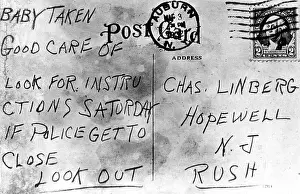 BABY TAKEN
GOOD CARE OF
LOOK FOR INSTRU
CTIONS SATURDAY
IF POLICE GET TO
CLOSE
LOOK OUT
Post Card
ADDRESS
AUBURN
N.
2
2
CHAS. LINBERG
HOPEWELL
N J
RUSH